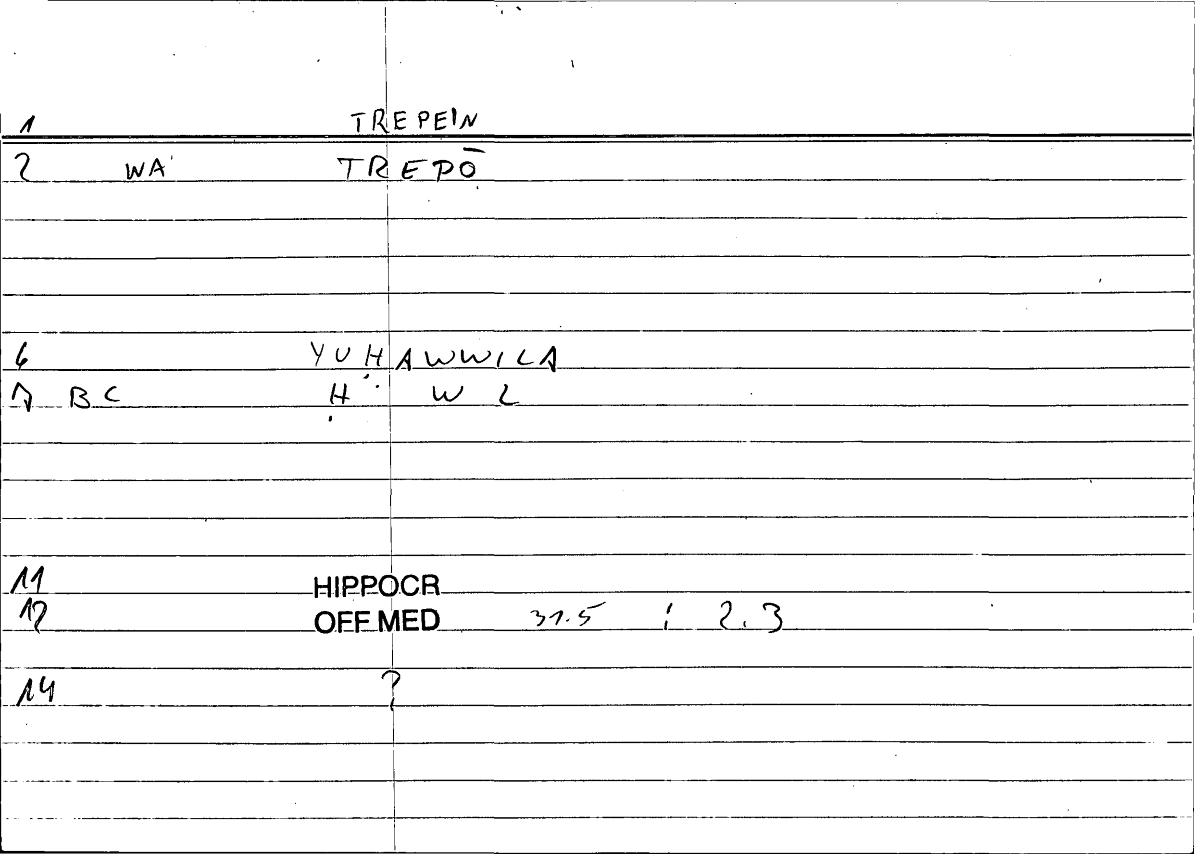 1 TREPEIN
2 WA TREPŌ
6 YUḤAWWILA
7 BC Ḥ W L
11 HIPPOCR
12 OFF MED 31.5 : 2.3
14 ?